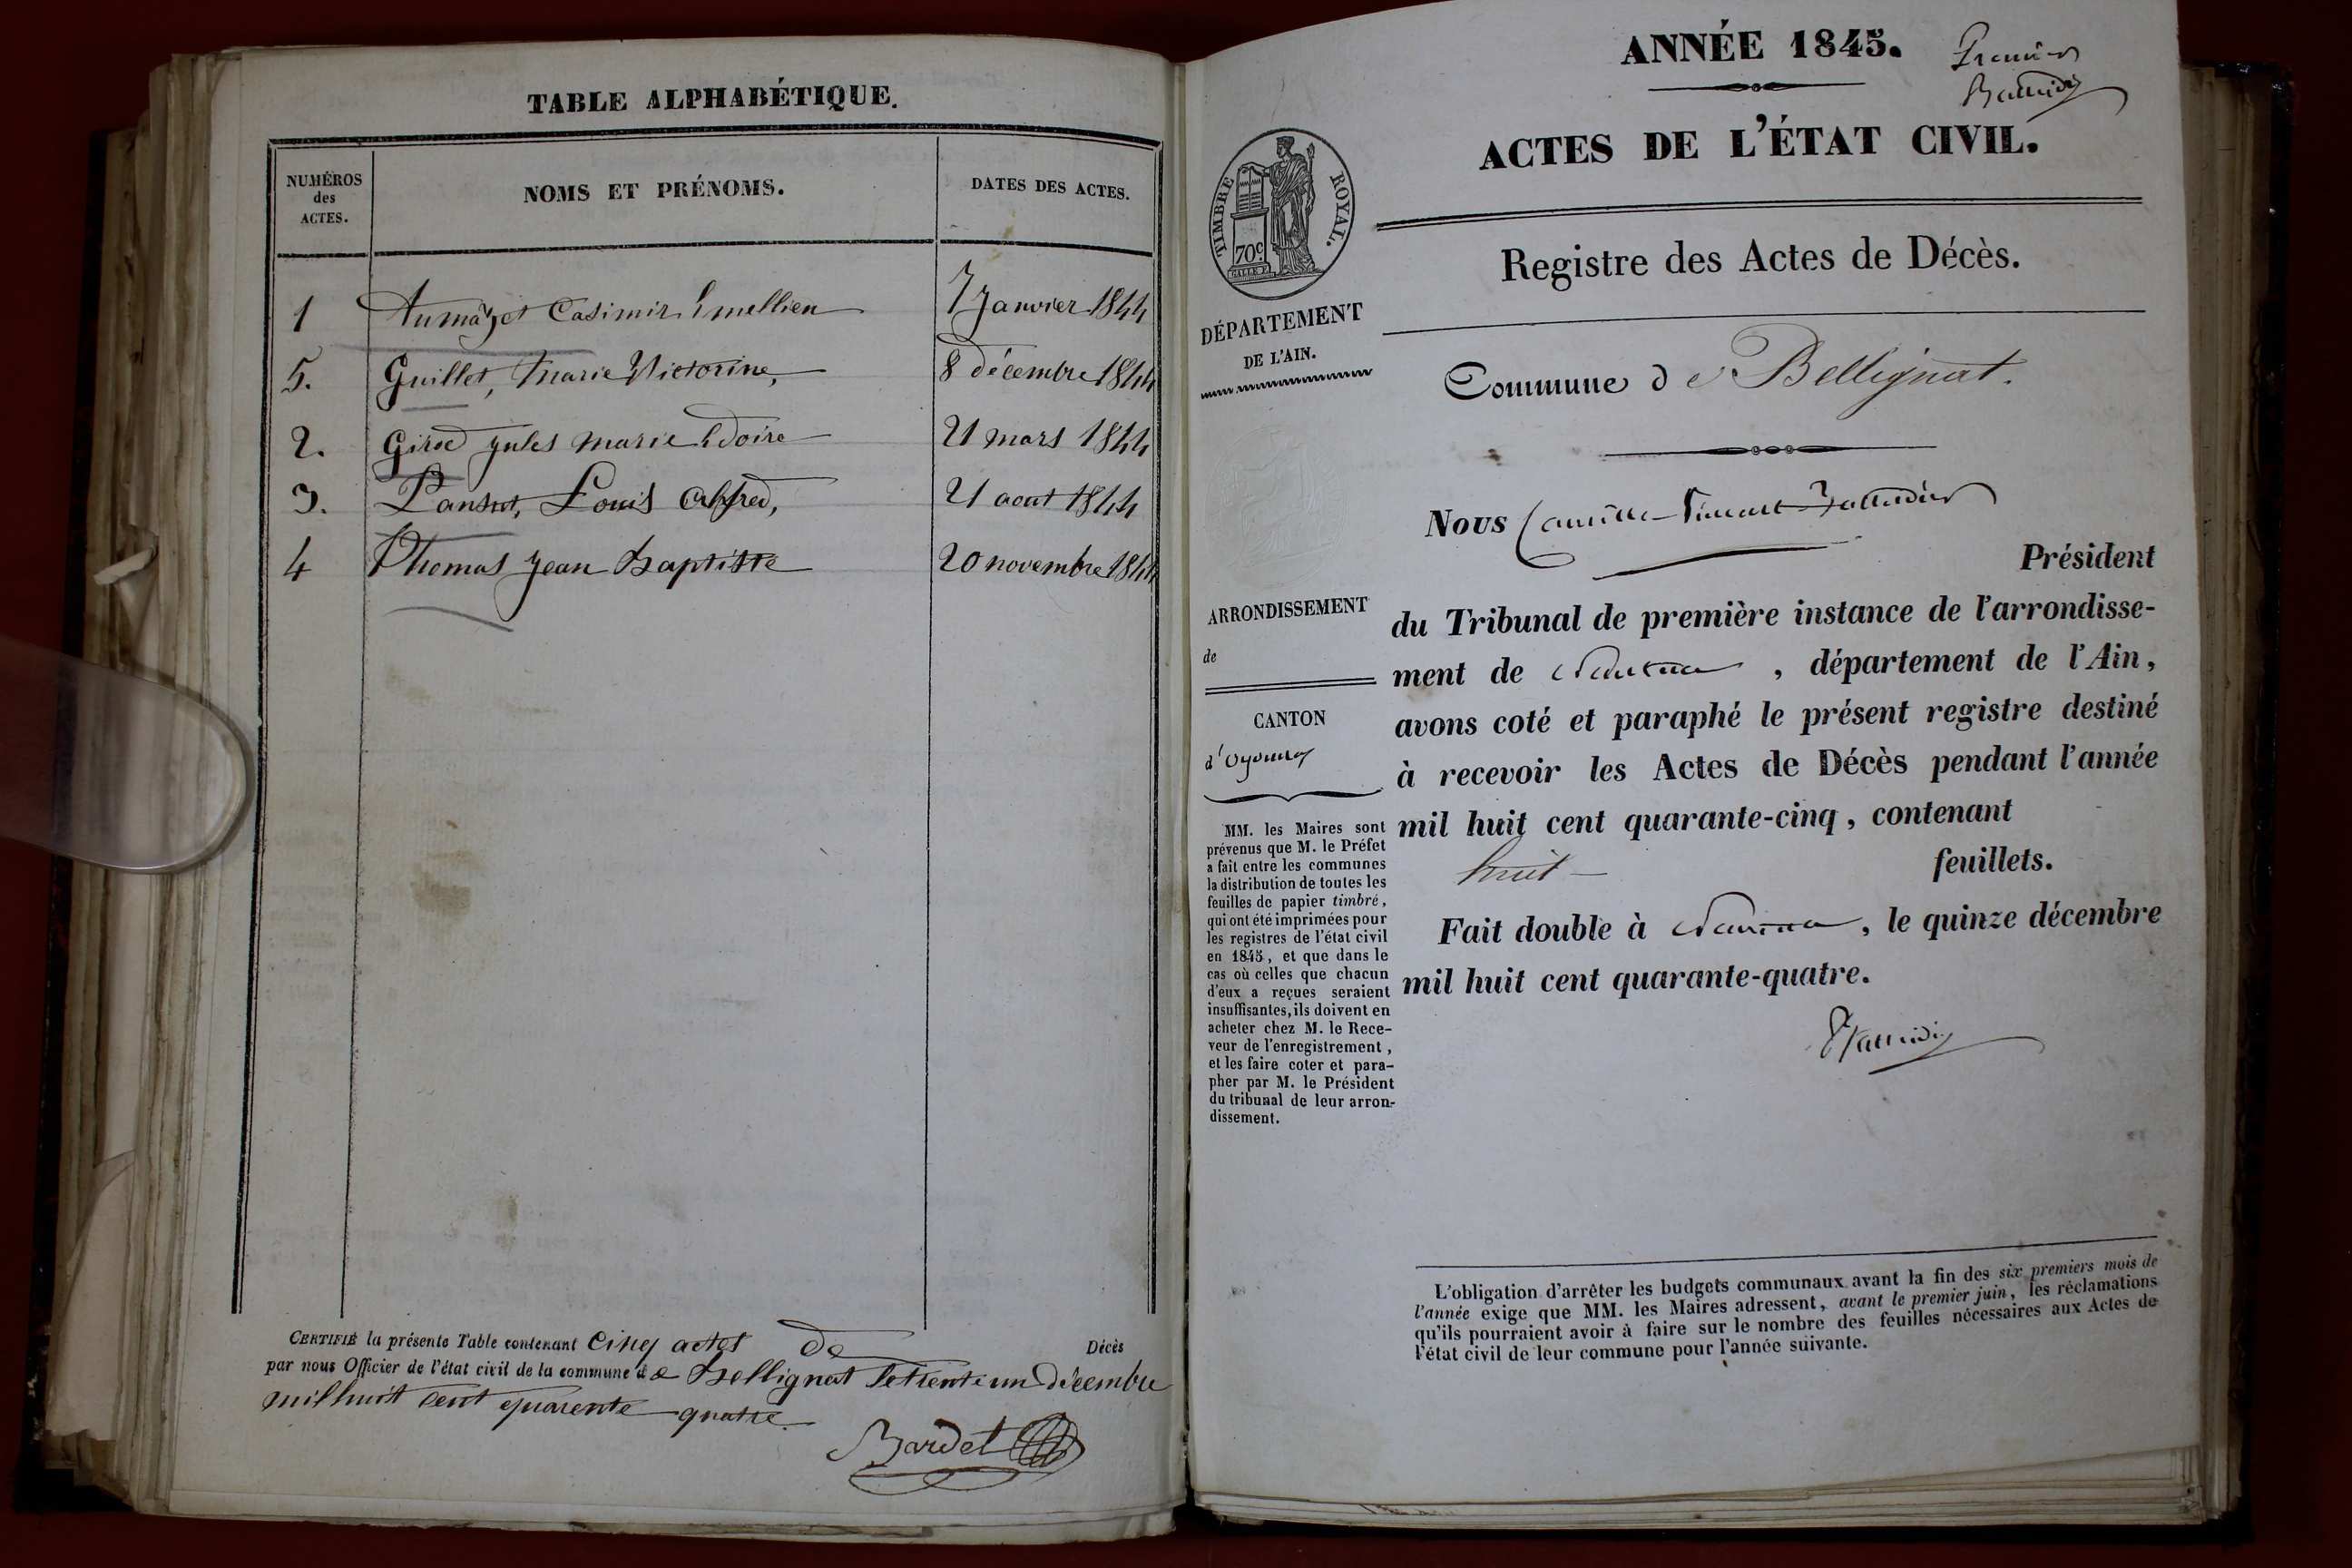 TABLE ALPHABÉTIQUE.
NUMÉROS
des
ACTES.
NOMS ET PRÉNOMS.
DATES DES ACTES.
1 Casimir 7 Janvier 1844
5. Guillet, Marie Victorine, 8 décembre 1844
2. Girod Jules Marie 21 mars 1844
3. Louis Alfred, 21 aout 1844
4 Thomas Jean Baptiste 20 novembre 1844
CERTIFIÉ la présente Table contenant Cinq actes de Décès
par nous Officier de l'état civil de la commune de Bellignat le trente un décembre
mil huit cent quarente quatre.
Bardet
ANNÉE 1845.
Premier
ACTES DE L'ÉTAT CIVIL.
TIMBRE ROYAL.
70c
Registre des Actes de Décès.
DÉPARTEMENT
DE L'AIN.
Commune de Bellignat.
Nous Camille Vincent
Président
ARRONDISSEMENT
de
du Tribunal de première instance de l'arrondisse-
ment de Nantua, département de l'Ain,
avons coté et paraphé le présent registre destiné
à recevoir les Actes de Décès pendant l'année
mil huit cent quarante-cinq, contenant
huit feuillets.
Fait double à Nantua, le quinze décembre
mil huit cent quarante-quatre.
CANTON
d'Oyonnax
MM. les Maires sont
prévenus que M. le Préfet
a fait entre les communes
la distribution de toutes les
feuilles de papier timbré,
qui ont été imprimées pour
les registres de l'état civil
en 1845, et que dans le
cas où celles que chacun
d'eux a reçues seraient
insuffisantes, ils doivent en
acheter chez M. le Rece-
veur de l'enregistrement,
et les faire coter et para-
pher par M. le Président
du tribunal de leur arron-
dissement.
L'obligation d'arrêter les budgets communaux avant la fin des six premiers mois de
l'année exige que MM. les Maires adressent, avant le premier juin, les réclamations
qu'ils pourraient avoir à faire sur le nombre des feuilles nécessaires aux Actes de
l'état civil de leur commune pour l'année suivante.